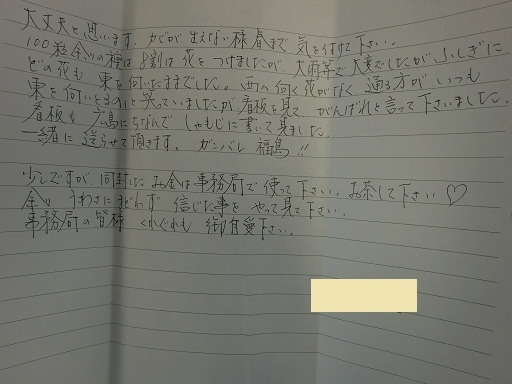 大丈夫と思います。カビが生えない様 春まで 気を付けて下さい。
100粒余りの種は 8割は 花をつけましたが 大雨等で 大変でしたが ふしぎに
どの花も 東を向いたままでした。西へ向く花がなく 通る方が いつも
東を向いとるねと笑っていましたが、看板を見て がんばれと言って下さいました。
看板も 広島にちなんで しゃもじに書いて見ました。
一緒に 送らせて頂きます。 ガンバレ 福島!!
少しですが、同封した お金は事務局で 使って下さい。お茶して下さい♡
うわさに まどわず 信じた事を やって見て下さい。
事務局の皆様 くれぐれも 御自愛下さい。